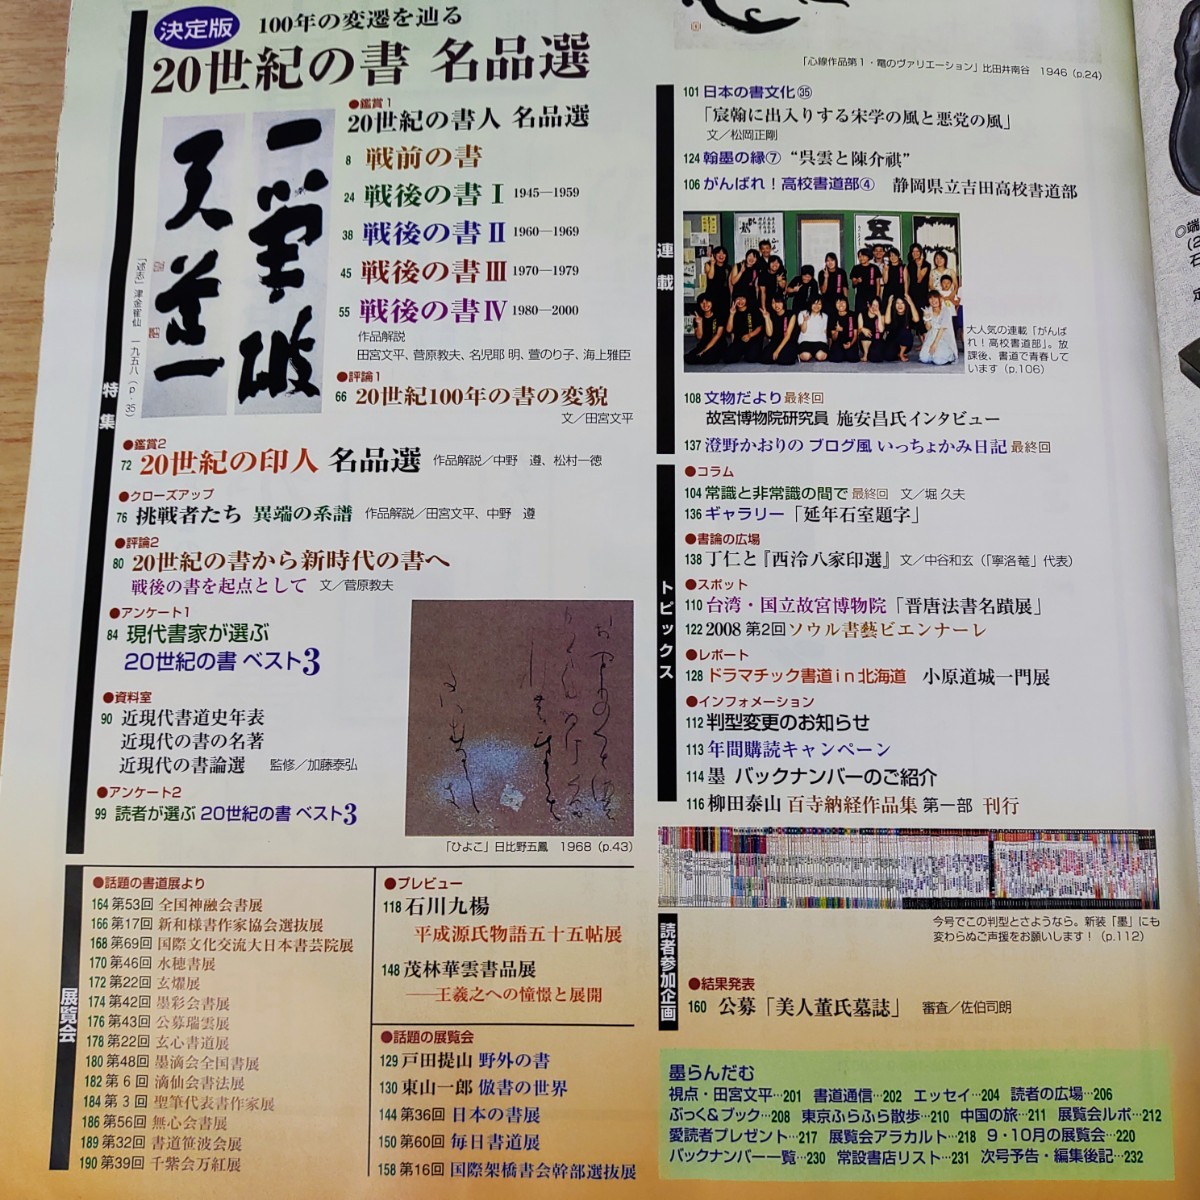 決定版
100年の変遷を辿る
20世紀の書 名品選
特集
「述志」津金寉仙 一九五八（p.35）
●鑑賞1
20世紀の書人 名品選
8 戦前の書
24 戦後の書Ⅰ 1945—1959
38 戦後の書Ⅱ 1960—1969
45 戦後の書Ⅲ 1970—1979
55 戦後の書Ⅳ 1980—2000
作品解説
田宮文平、菅原教夫、名児耶 明、萱のり子、海上雅臣
●評論1
66 20世紀100年の書の変貌
文／田宮文平
●鑑賞2
72 20世紀の印人 名品選 作品解説／中野 遵、松村一徳
●クローズアップ
76 挑戦者たち 異端の系譜 作品解説／田宮文平、中野 遵
●評論2
80 20世紀の書から新時代の書へ
戦後の書を起点として 文／菅原教夫
●アンケート1
84 現代書家が選ぶ
20世紀の書 ベスト3
●資料室
90 近現代書道史年表
近現代の書の名著
近現代の書論選 監修／加藤泰弘
●アンケート2
99 読者が選ぶ 20世紀の書 ベスト3
「ひよこ」日比野五鳳 1968（p.43）
展覧会
●話題の書道展より
164 第53回 全国神融会書展
166 第17回 新和様書作家協会選抜展
168 第69回 国際文化交流大日本書芸院展
170 第46回 水穂書展
172 第22回 玄燿展
174 第42回 墨彩会書展
176 第43回 公募瑞雲展
178 第22回 玄心書道展
180 第48回 墨滴会全国書展
182 第 6 回 滴仙会書法展
184 第 3 回 聖筆代表書作家展
186 第56回 無心会書展
189 第32回 書道笹波会展
190 第39回 千紫会万紅展
●プレビュー
118 石川九楊
平成源氏物語五十五帖展
148 茂林華雲書品展
——王羲之への憧憬と展開
●話題の展覧会
129 戸田提山 野外の書
130 東山一郎 倣書の世界
144 第36回 日本の書展
150 第60回 毎日書道展
158 第16回 国際架橋書会幹部選抜展
「心線作品第1・電のヴァリエーション」比田井南谷 1946（p.24）
連載
101 日本の書文化㉟
「宸翰に出入りする宋学の風と悪党の風」
文／松岡正剛
124 翰墨の縁⑦ “呉雲と陳介祺”
106 がんばれ！高校書道部④ 静岡県立吉田高校書道部
大人気の連載「がんば
れ！高校書道部」。放
課後、書道で青春して
います（p.106）
108 文物だより 最終回
故宮博物院研究員 施安昌氏インタビュー
137 澄野かおりの ブログ風 いっちょかみ日記 最終回
トピックス
●コラム
104 常識と非常識の間で 最終回 文／堀 久夫
136 ギャラリー「延年石室題字」
●書論の広場
138 丁仁と『西泠八家印選』 文／中谷和玄（「寧洛菴」代表）
●スポット
110 台湾・国立故宮博物院「晋唐法書名蹟展」
122 2008 第2回 ソウル書藝ビエンナーレ
●レポート
128 ドラマチック書道in北海道 小原道城一門展
●インフォメーション
112 判型変更のお知らせ
113 年間購読キャンペーン
114 墨 バックナンバーのご紹介
116 柳田泰山 百寺納経作品集 第一部 刊行
今号でこの判型とさようなら。新装「墨」にも
変わらぬご声援をお願いします！（p.112）
読者参加企画
●結果発表
160 公募「美人董氏墓誌」 審査／佐伯司朗
墨らんだむ
視点・田宮文平…201 書道通信…202 エッセイ…204 読者の広場…206
ぶっく&ブック…208 東京ふらふら散歩…210 中国の旅…211 展覧会ルポ…212
愛読者プレゼント…217 展覧会アラカルト…218 9・10月の展覧会…220
バックナンバー一覧…230 常設書店リスト…231 次号予告・編集後記…232